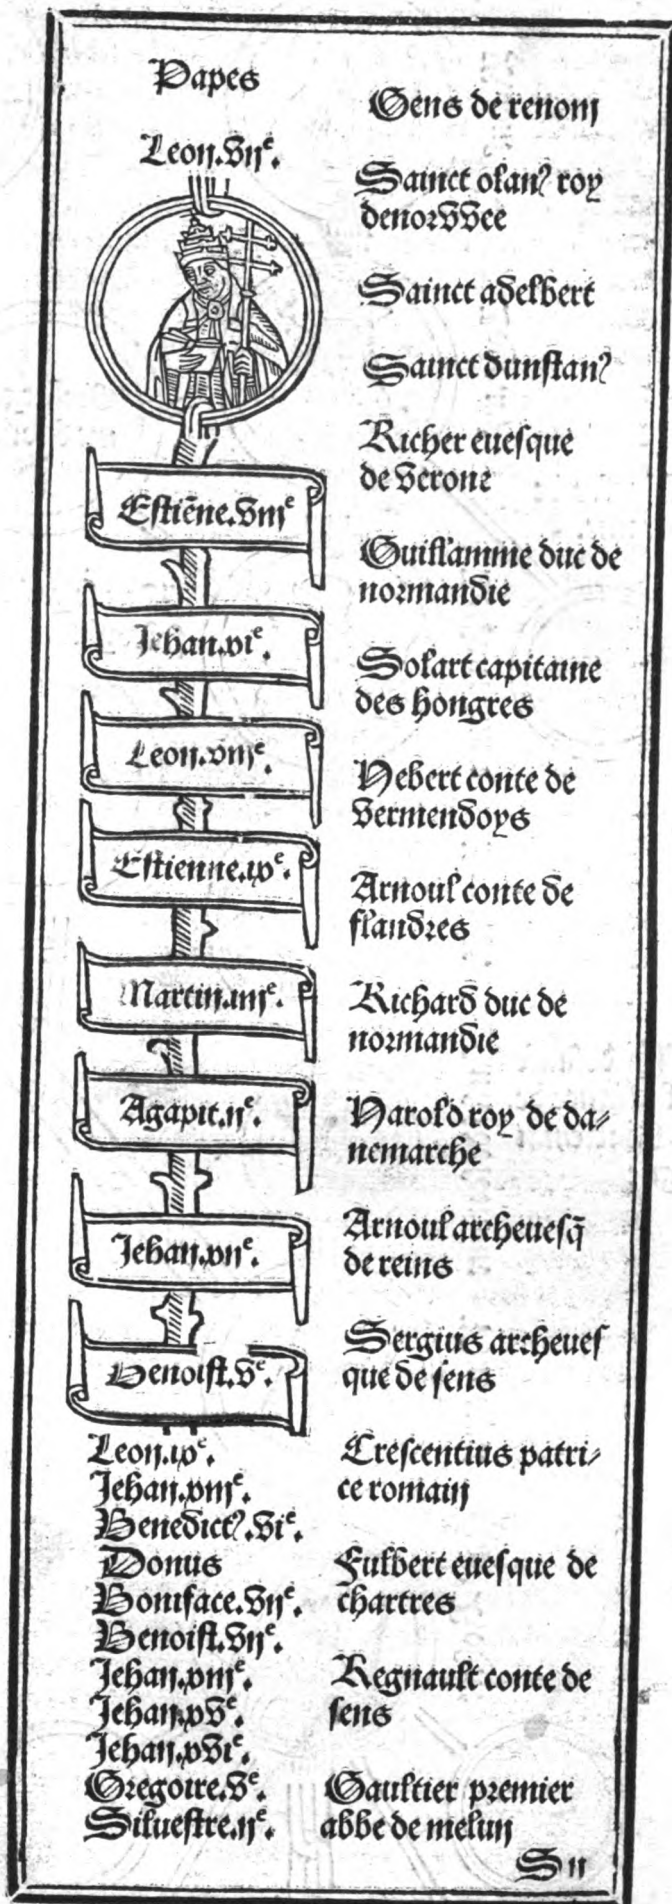 Papes
Leon.vii^e.
Estiẽne.viii^e
Jehan.xi^e.
Leon.viii^e.
Estienne.ix^e.
Martin.iiii^e.
Agapit.ii^e.
Jehan.xii^e.
Benoist.v^e.
Leon.ix^e.
Jehan.xiii^e.
Benedict⁹.vi^e.
Donus
Boniface.vii^e.
Benoist.vii^e.
Jehan.xiiii^e.
Jehan.xv^e.
Jehan.xvi^e.
Gregoire.v^e.
Siluestre.ii^e.
Gens de renom
Sainct olan⁹ roy
denorvvee
Sainct adelbert
Sainct dunstan⁹
Richer euesque
de verone
Guillamme duc de
normandie
Solart capitaine
des hongres
Hebert conte de
vermendoys
Arnoul conte de
flandres
Richard duc de
normandie
Harold roy de da/
nemarche
Arnoul archeuesq̃
de reins
Sergius archeues
que de sens
Crescentius patri/
ce romain
Fulbert euesque de
chartres
Regnault conte de
sens
Gaultier premier
abbe de melun
S ii